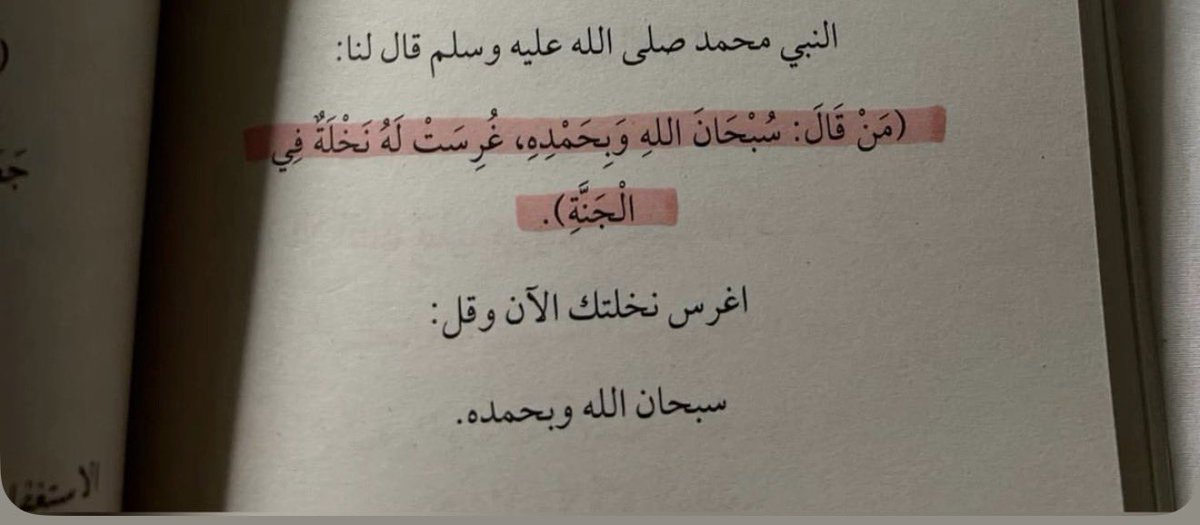 النبي محمد صلى الله عليه وسلم قال لنا:
(مَنْ قَالَ: سُبْحَانَ اللهِ وَبِحَمْدِهِ، غُرِسَتْ لَهُ نَخْلَةٌ فِي
الْجَنَّةِ).
اغرس نخلتك الآن وقل:
سبحان الله وبحمده.